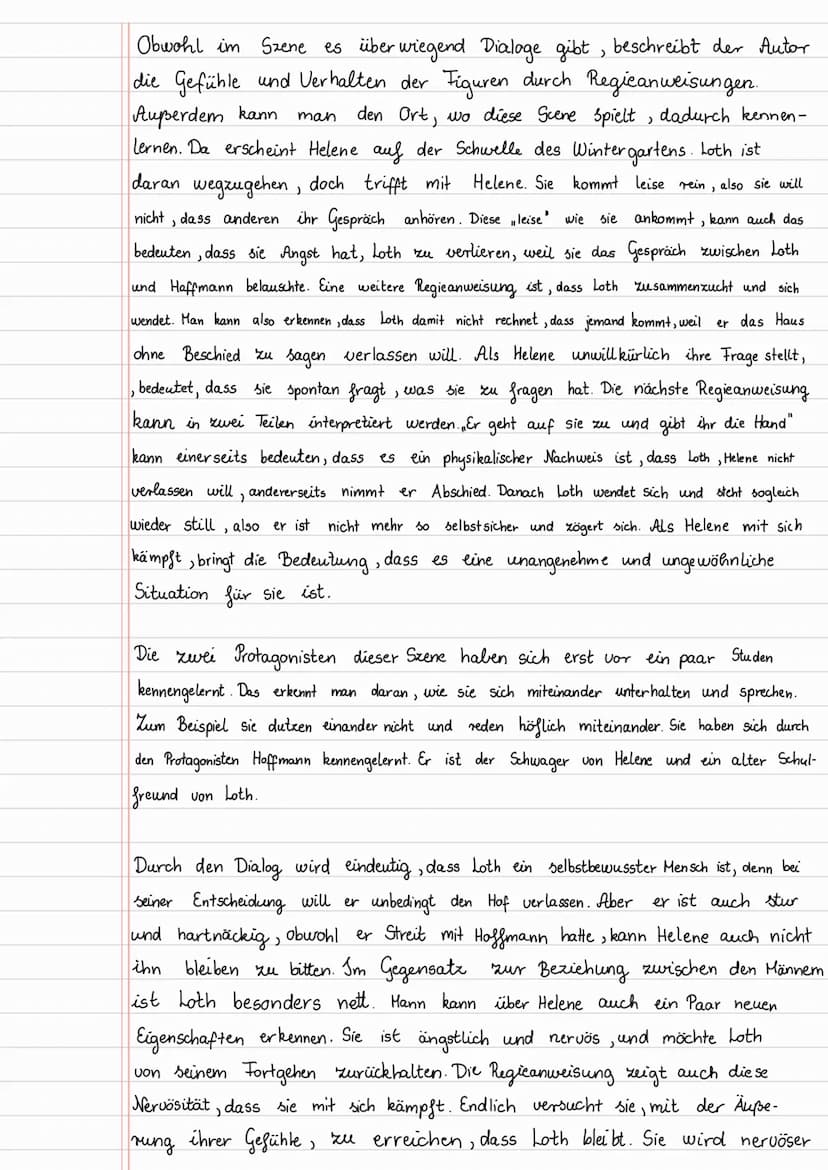 Obwohl im Szene es überwiegend Dialoge gibt, beschreibt der Autor
die Gefühle und Verhalten der Figuren durch Regieanweisungen.
Außerdem kann man den Ort, wo diese Scene spielt, dadurch kennen-
lernen. Da erscheint Helene auf der Schwelle des Wintergartens. Loth ist
daran wegzugehen, doch trifft mit Helene. Sie kommt leise rein, also sie will
nicht, dass anderen ihr Gespräch anhören. Diese „leise" wie sie ankommt, kann auch das
bedeuten, dass sie Angst hat, Loth zu verlieren, weil sie das Gespräch zwischen Loth
und Hoffmann belauschte. Eine weitere Regieanweisung ist, dass Loth zusammenzucht und sich
wendet. Man kann also erkennen, dass Loth damit nicht rechnet, dass jemand kommt, weil er das Haus
ohne Beschied zu sagen verlassen will. Als Helene unwillkürlich ihre Frage stellt,
, bedeutet, dass sie spontan fragt, was sie zu fragen hat. Die nächste Regieanweisung
kann in zwei Teilen interpretiert werden. „Er geht auf sie zu und gibt ihr die Hand"
kann einerseits bedeuten, dass es ein physikalischer Nachweis ist, dass Loth, Helene nicht
verlassen will, andererseits nimmt er Abschied. Danach Loth wendet sich und steht sogleich
wieder still, also er ist nicht mehr so selbstsicher und zögert sich. Als Helene mit sich
kämpft, bringt die Bedeutung, dass es eine unangenehme und ungewöhnliche
Situation für sie ist.
Die zwei Protagonisten dieser Szene haben sich erst vor ein paar Studen
kennengelernt. Das erkennt man daran, wie sie sich miteinander unterhalten und sprechen.
Zum Beispiel sie dutzen einander nicht und reden höflich miteinander. Sie haben sich durch
den Protagonisten Hoffmann kennengelernt. Er ist der Schwager von Helene und ein alter Schul-
freund von Loth.
Durch den Dialog wird eindeutig, dass Loth ein selbstbewusster Mensch ist, denn bei
seiner Entscheidung will er unbedingt den Hof verlassen. Aber er ist auch stur
und hartnäckig, obwohl er Streit mit Hoffmann hatte, kann Helene auch nicht
ihn bleiben zu bitten. Im Gegensatz zur Beziehung zwischen den Männern
ist Loth besonders nett. Mann kann über Helene auch ein Paar neuen
Eigenschaften erkennen. Sie ist ängstlich und nervös, und möchte Loth
von seinem Fortgehen zurückhalten. Die Regieanweisung zeigt auch diese
Nervösität, dass sie mit sich kämpft. Endlich versucht sie, mit der Äuße-
rung ihrer Gefühle, zu erreichen, dass Loth bleibt. Sie wird nervöser